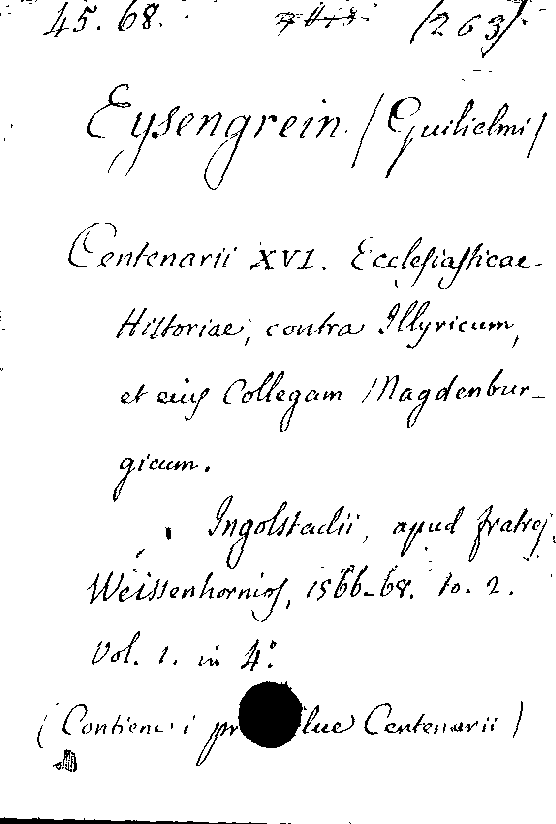 45. 68. (263).
Eysengrein. (Guilielmi)
Centenarii XVI. Ecclesiasticae
Historiae, contra Illyricum,
et eius Collegam Magdenbur-
gicum.
Ingolstadii, apud fratres
Weissenhornios, 1566-68. to. 2.
Vol. 1. in 4º.
(Contiene i pr lue Centenarii)